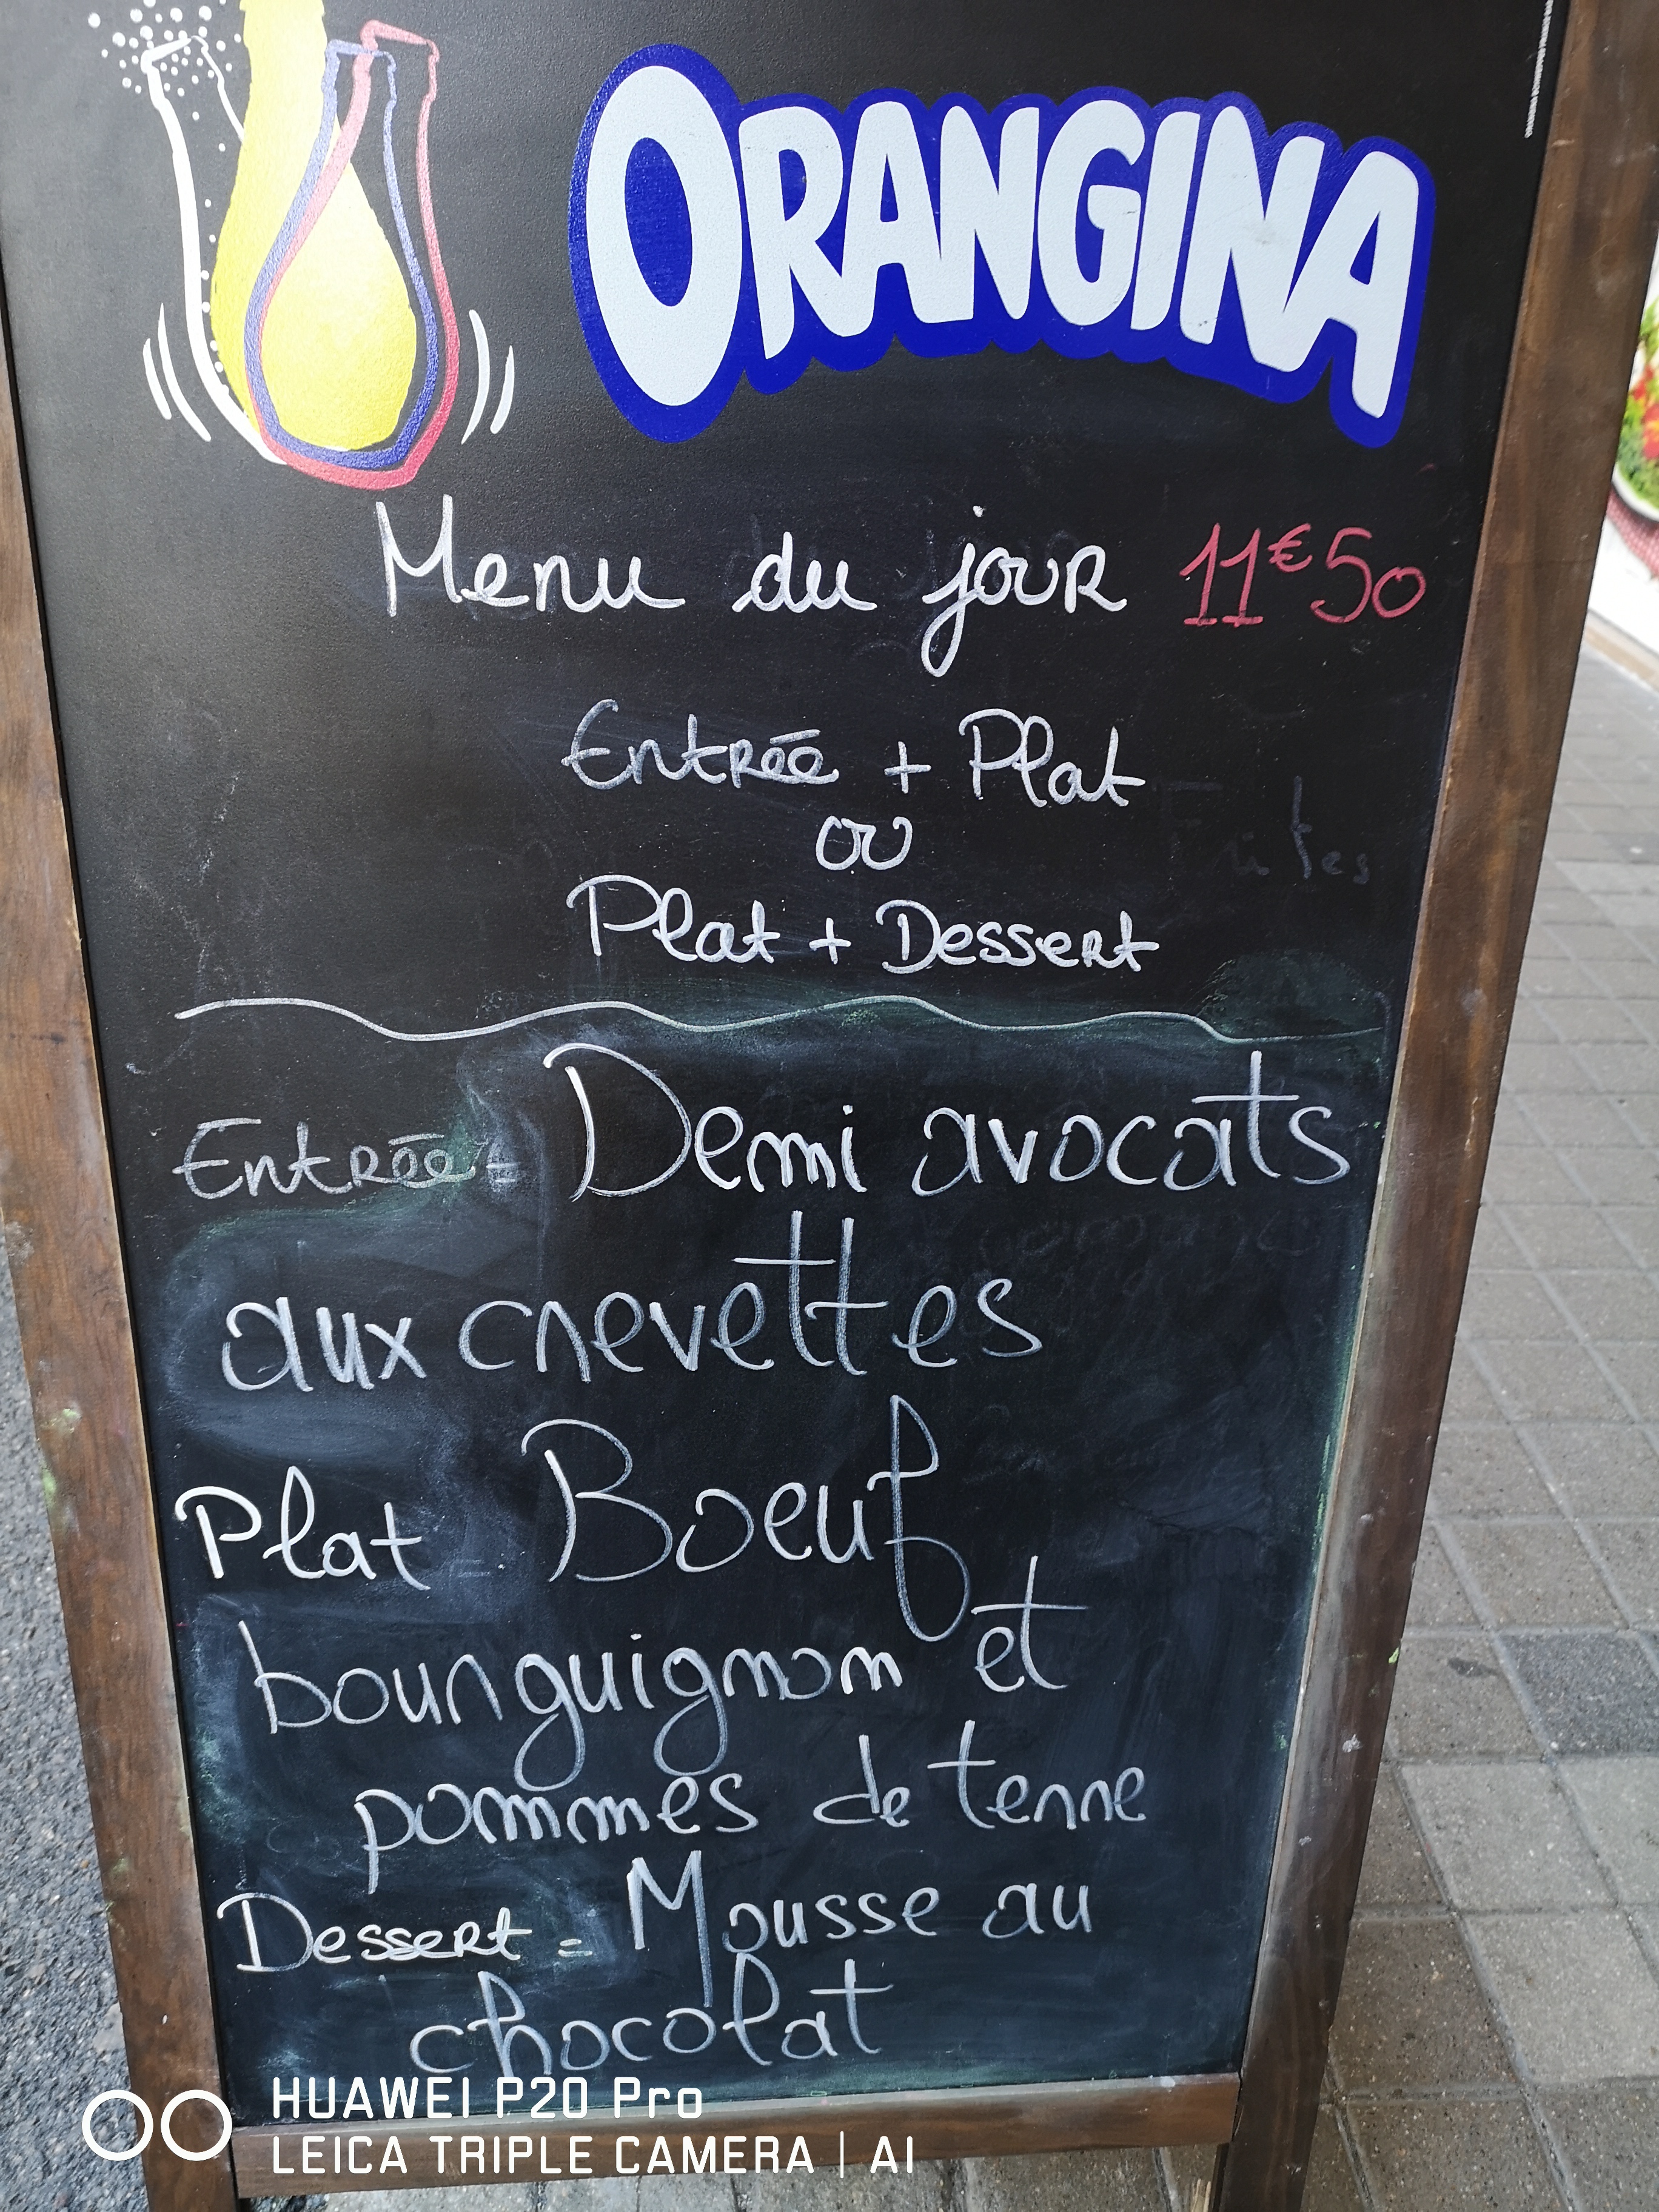 ORANGINA
Menu du jour 11€50
Entrée + Plat
ou
Plat + Dessert
Entrée = Demi avocats
aux crevettes
Plat = Boeuf
bourguignon et
pommes de terre
Dessert = Mousse au
chocolat
HUAWEI P20 Pro
LEICA TRIPLE CAMERA | AI